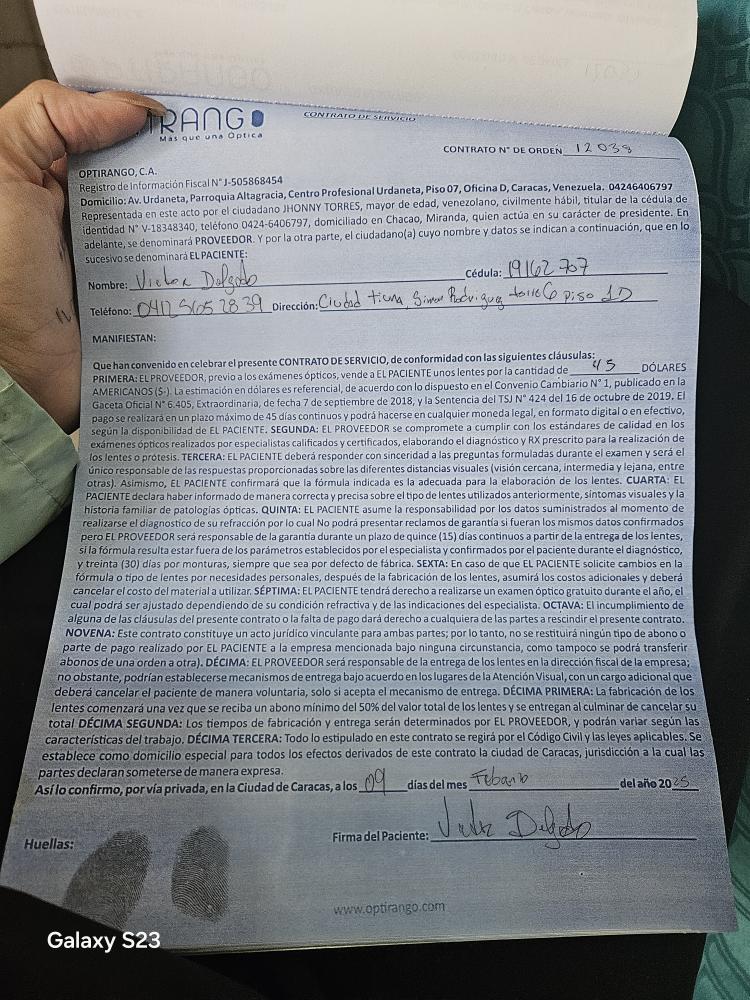 TRANGO
Más que una Óptica
CONTRATO DE SERVICIO
CONTRATO N° DE ORDEN 12038
OPTIRANGO, C.A.
Registro de Información Fiscal N° J-505868454
Domicilio: Av. Urdaneta, Parroquia Altagracia, Centro Profesional Urdaneta, Piso 07, Oficina D, Caracas, Venezuela. 04246406797
Representada en este acto por el ciudadano JHONNY TORRES, mayor de edad, venezolano, civilmente hábil, titular de la cédula de
identidad N° V-18348340, teléfono 0424-6406797, domiciliado en Chacao, Miranda, quien actúa en su carácter de presidente. En
adelante, se denominará PROVEEDOR. Y por la otra parte, el ciudadano(a) cuyo nombre y datos se indican a continuación, que en lo
sucesivo se denominará EL PACIENTE:
Nombre: Victor Delgado Cédula: 19162707
Teléfono: 0412 565 28 39 Dirección: Ciudad tiuna Simon Rodriguez torre 6 piso 1D
MANIFIESTAN:
Que han convenido en celebrar el presente CONTRATO DE SERVICIO, de conformidad con las siguientes cláusulas:
PRIMERA: EL PROVEEDOR, previo a los exámenes ópticos, vende a EL PACIENTE unos lentes por la cantidad de 45 DÓLARES
AMERICANOS (S·). La estimación en dólares es referencial, de acuerdo con lo dispuesto en el Convenio Cambiario N° 1, publicado en la
Gaceta Oficial N° 6.405, Extraordinaria, de fecha 7 de septiembre de 2018, y la Sentencia del TSJ N° 424 del 16 de octubre de 2019. El
pago se realizará en un plazo máximo de 45 días continuos y podrá hacerse en cualquier moneda legal, en formato digital o en efectivo,
según la disponibilidad de EL PACIENTE. SEGUNDA: EL PROVEEDOR se compromete a cumplir con los estándares de calidad en los
exámenes ópticos realizados por especialistas calificados y certificados, elaborando el diagnóstico y RX prescrito para la realización de
los lentes o prótesis. TERCERA: EL PACIENTE deberá responder con sinceridad a las preguntas formuladas durante el examen y será el
único responsable de las respuestas proporcionadas sobre las diferentes distancias visuales (visión cercana, intermedia y lejana, entre
otras). Asimismo, EL PACIENTE confirmará que la fórmula indicada es la adecuada para la elaboración de los lentes. CUARTA: EL
PACIENTE declara haber informado de manera correcta y precisa sobre el tipo de lentes utilizados anteriormente, síntomas visuales y la
historia familiar de patologías ópticas. QUINTA: EL PACIENTE asume la responsabilidad por los datos suministrados al momento de
realizarse el diagnostico de su refracción por lo cual No podrá presentar reclamos de garantía si fueran los mismos datos confirmados
pero EL PROVEEDOR será responsable de la garantía durante un plazo de quince (15) días continuos a partir de la entrega de los lentes,
si la fórmula resulta estar fuera de los parámetros establecidos por el especialista y confirmados por el paciente durante el diagnóstico,
y treinta (30) días por monturas, siempre que sea por defecto de fábrica. SEXTA: En caso de que EL PACIENTE solicite cambios en la
fórmula o tipo de lentes por necesidades personales, después de la fabricación de los lentes, asumirá los costos adicionales y deberá
cancelar el costo del material a utilizar. SÉPTIMA: EL PACIENTE tendrá derecho a realizarse un examen óptico gratuito durante el año, el
cual podrá ser ajustado dependiendo de su condición refractiva y de las indicaciones del especialista. OCTAVA: El incumplimiento de
alguna de las cláusulas del presente contrato o la falta de pago dará derecho a cualquiera de las partes a rescindir el presente contrato.
NOVENA: Este contrato constituye un acto jurídico vinculante para ambas partes; por lo tanto, no se restituirá ningún tipo de abono o
parte de pago realizado por EL PACIENTE a la empresa mencionada bajo ninguna circunstancia, como tampoco se podrá transferir
abonos de una orden a otra). DÉCIMA: EL PROVEEDOR será responsable de la entrega de los lentes en la dirección fiscal de la empresa;
no obstante, podrían establecerse mecanismos de entrega bajo acuerdo en los lugares de la Atención Visual, con un cargo adicional que
deberá cancelar el paciente de manera voluntaria, solo si acepta el mecanismo de entrega. DÉCIMA PRIMERA: La fabricación de los
lentes comenzará una vez que se reciba un abono mínimo del 50% del valor total de los lentes y se entregan al culminar de cancelar su
total DÉCIMA SEGUNDA: Los tiempos de fabricación y entrega serán determinados por EL PROVEEDOR, y podrán variar según las
características del trabajo. DÉCIMA TERCERA: Todo lo estipulado en este contrato se regirá por el Código Civil y las leyes aplicables. Se
establece como domicilio especial para todos los efectos derivados de este contrato la ciudad de Caracas, jurisdicción a la cual las
partes declaran someterse de manera expresa.
Así lo confirmo, por vía privada, en la Ciudad de Caracas, a los 09 días del mes Febrero del año 2025
Huellas:
Firma del Paciente: Victor Delgado
www.optirango.com
Galaxy S23